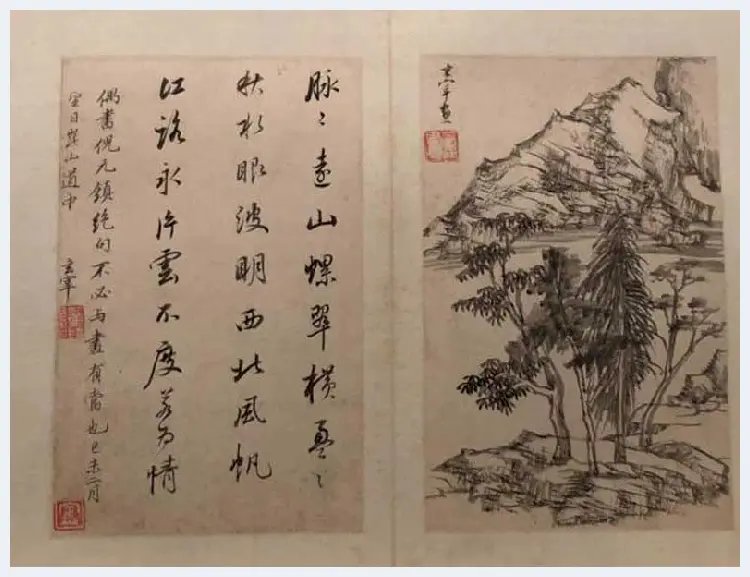 脉〻遠山螺翠横盈〻
秋水眼波明西北風帆
江路永片雲不度若为情
偶書倪元鎮絶句不必与畫有當也己未二月
望日崑山道中
玄宰
玄宰畫